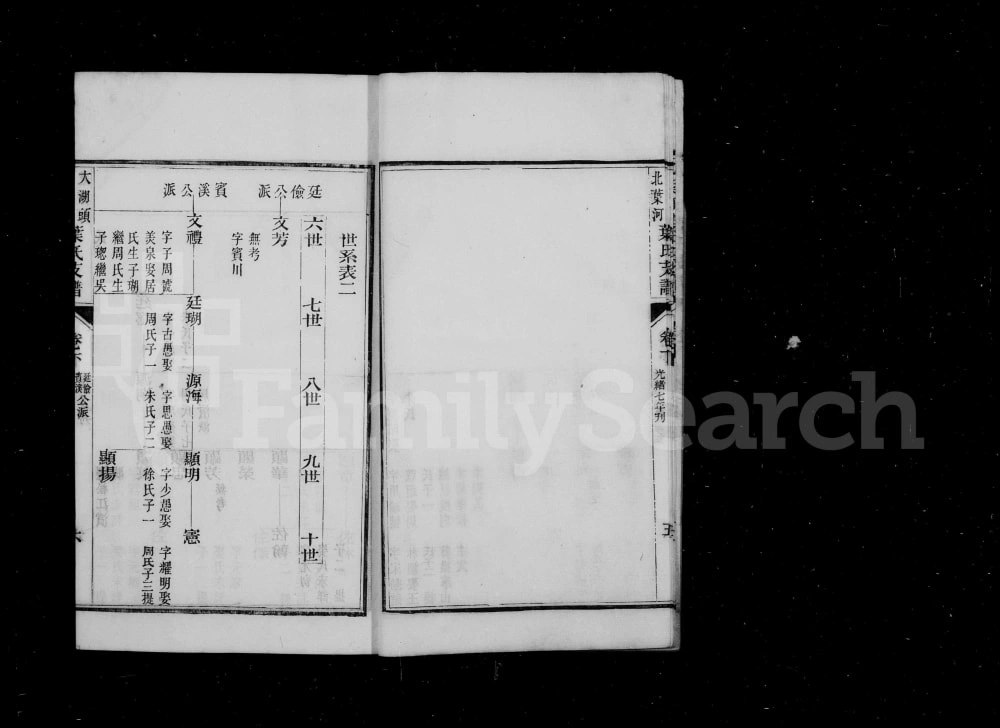 北葉河
葉氏支譜
光緒七年刊
五
世系表二
六世
七世
八世
九世
十世
廷儉公派
文芳
無考
字賓川
賓溪公派
文禮
廷瑚
源海
顯明
憲
字子周號
美泉娶居
氏生子瑚
繼周氏生
子璁繼吳
字古愚娶
周氏子一
字思愚娶
朱氏子二
字少愚娶
徐氏子一
字耀明娶
周氏子三提
顯揚
大湖頭
葉氏支譜
卷六
廷儉
賓溪
公派
六
FamilySearch